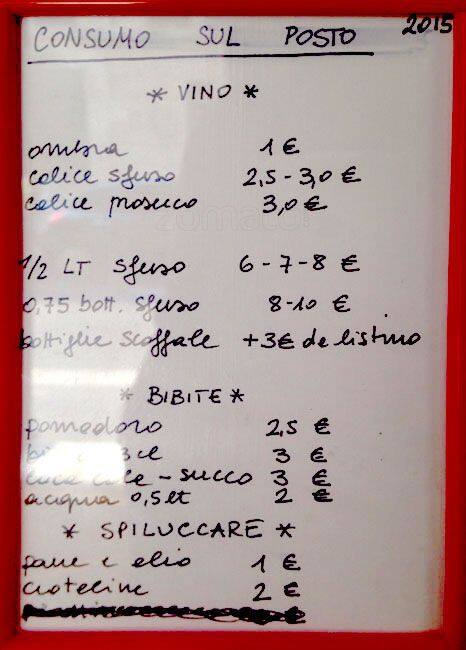 2015
CONSUMO SUL POSTO
* VINO *
ombra 1 €
calice sfuso 2,5 - 3,0 €
calice prosecco 3,0 €
zomato
1/2 LT sfuso 6 - 7 - 8 €
0,75 bott. sfuso 8-10 €
bottiglie scaffale +3€ de listino
* BIBITE *
pomodoro 2,5 €
3 €
coca cola - succo 3 €
acqua 0,5 lt 2 €
* SPILUCCARE *
pane e olio 1 €
crostine 2 €
€